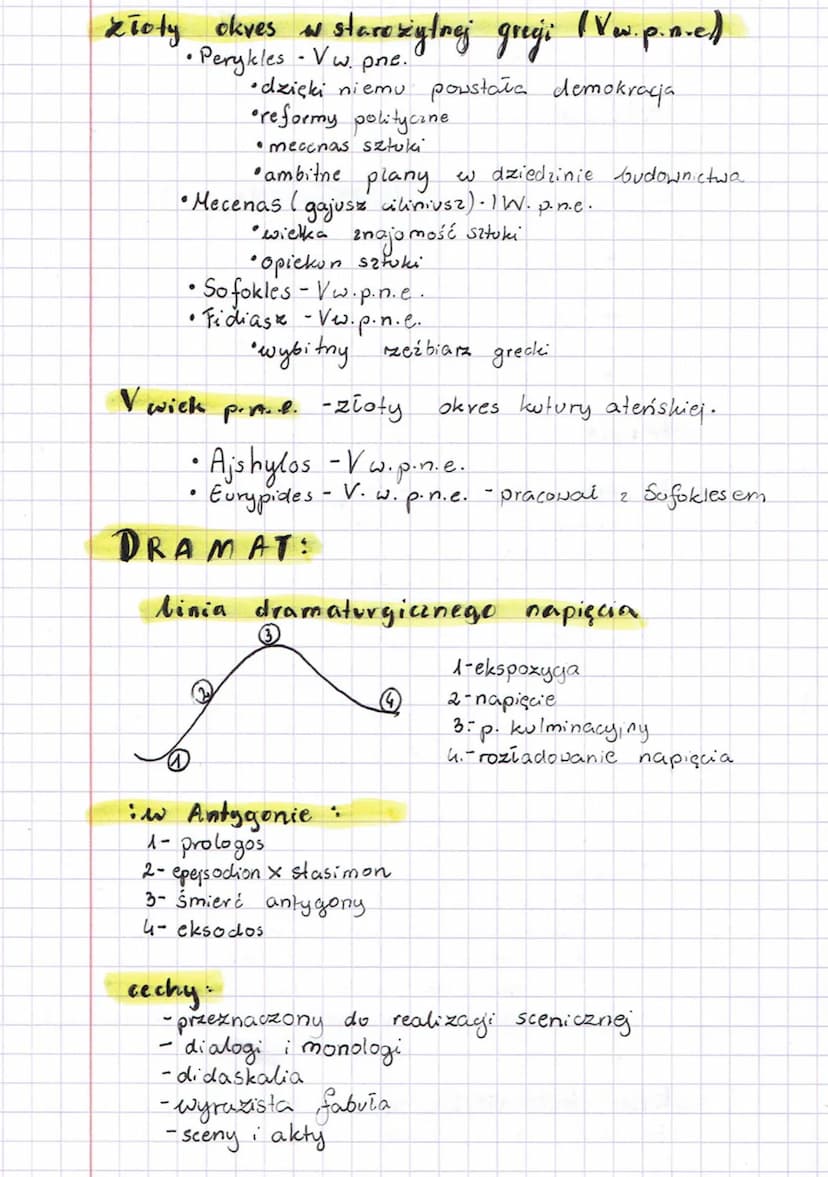 złoty okres w starożytnej grecji (V w.p.n.e)
• Perykles - V w. pne.
• dzięki niemu powstała demokracja
• reformy polityczne
• mecenas sztuki
• ambitne plany w dziedzinie budownictwa
• Mecenas (gajusz ciliniusz) - I W. p.n.e.
• wielka znajomość sztuki
• opiekun sztuki
• Sofokles - V w.p.n.e.
• Fidiasz - V w.p.n.e.
• wybitny rzeźbiarz grecki
V wiek p.n.e. - złoty okres kutury ateńskiej.
• Ajshylos - V w.p.n.e.
• Eurypides - V. w. p.n.e. - pracował z Sofoklesem
DRAMAT:
linia dramaturgicznego napięcia
3
2
4
1
1-ekspozycja
2-napięcie
3:-p. kulminacyjny
4.-rozładowanie napięcia
: w Antygonie :
1- prologos
2- epejsodion x stasimon
3- śmierć antygony
4- eksodos
cechy:
- przeznaczony do realizacji scenicznej
- dialogi i monologi
- didaskalia
- wyrazista fabuła
- sceny i akty